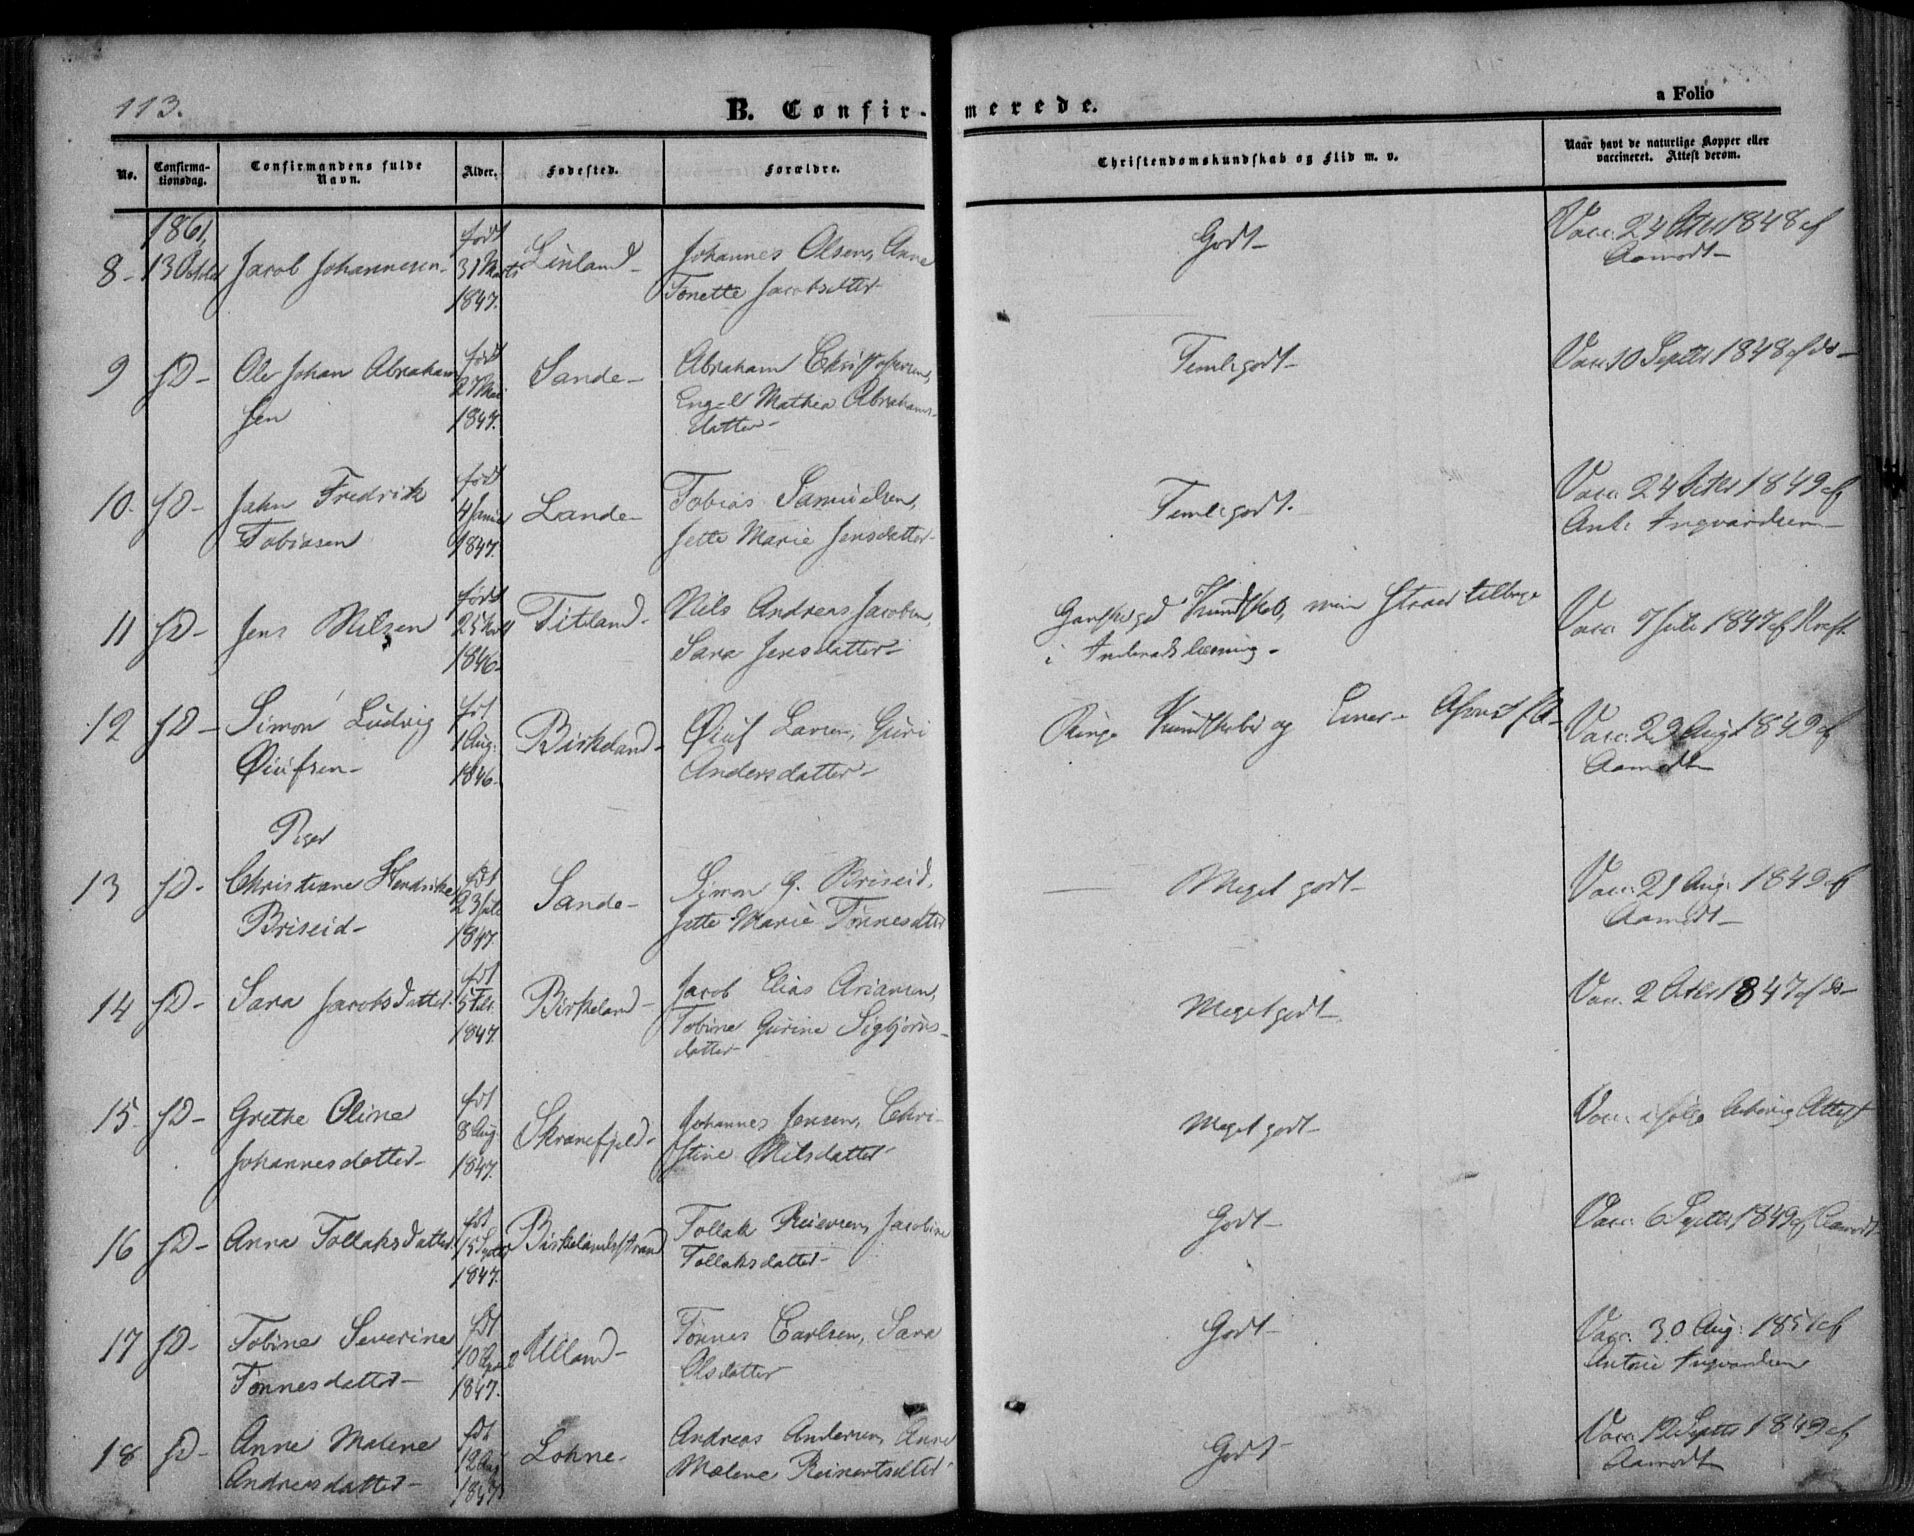 113.
B. Confir-
merede.
a Folio
No.
Confirma-
tionsdag.
Confirmandens fulde
Navn.
Alder.
Fødested.
Forældre.
Christendomskundskab og Flid m. v.
Naar havt de naturlige Kopper eller
vaccineret. Attest derom.
1861,
8- 13 Octbr Jacob Johannesen- født 31 Marts 1847. Linland- Johannes Olsen, Anne
Tonette Jacobsdtter
Godt-
Vacc. 24 Octbr 1848 af
Aamodt-
9 D- Ole Johan Abraham
sen
født 27 Mai 1847. Sande-
Abraham Christophersen,
Engel Mathea Abrahams-
datter-
Temlig godt-
Vacc. 10 Septbr 1848 af do-
10. D- John Fredrik
Tobiasen
født 4 Januar 1847. Lande-
Tobias Samuelsen,
Jette Marie Jensdatter-
Temlig godt.
Vacc. 24 Octbr 1849 af
Ant. Ingvardsen-
11 D- Jens Nilsen
født 25 1846- Titland-
Nils Andreas Jacobsen,
Sara Jensdatter-
Ganske god Kundskab, men staaer tilbage
i Indenadslæsning-
Vacc. 7 Juli 1847 af Kraft
12 D- Simon Ludvig
Øiufsen-
føt 1 Aug. 1846- Birkeland-
Øiuf Larsen, Guri
Andersdatter-
Ringe Kundskaber og
Vacc. 29 Aug. 1849 af
Aamodt
Piger
13 D- Christiane Hendrike
Briseid-
fdt 23 Juli 1847. Sande-
Simon G. Briseid,
Jette Marie Tønnesdtter
Meget godt-
Vacc. 21 Aug. 1849 af
Aamodt-
14 D- Sara Jacobsdatter.
fdt 5 Febr. 1847. Birkeland-
Jacob Elias Ariansen,
Tobine Gurine Sigbjørns-
datter-
Meget godt-
Vacc. 2 Octbr 1847 af do-
15. D- Grethe Oline
Johannesdatter-
fdt 8 Aug. 1847. Skranefjeld-
Johannes Jensen, Chri-
stine Nilsdatter-
Meget godt-
Vacc. ifølge Attest
16 D- Anna Tollaksdatter.
fdt 15 Septbr 1847. Birkelandsstrand
Tollak Reiersen, Jacobine
Tollaksdatter-
Godt-
Vacc. 6 Septbr 1849 af Aamodt-
17 D- Tobine Severine
Tønnesdatter-
fdt 10 April 1847. Uland-
Tønnes Carlsen, Sara
Olsdatter
Godt-
Vacc. 30 Aug. 1851 af
Antoni Ingvardsen
18 D- Anne Malene
Andreasdatter-
fdt 12 Aug 1847 Lohne-
Andreas Andersen, Anne
Malene Reinertsdtter
Godt-
Vacc. 12 Septbr 1849 af
Aamodt